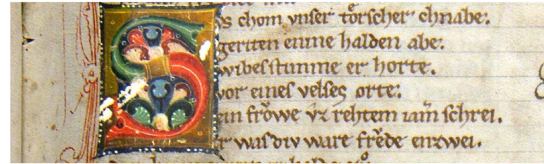 Svs chom vnser törscher chnabe.
geriten einne halden abe.
wibes stimme er horte.
vor eines velses orte.
ein frǒwe vz rehtem iam̄ schrei.
ir was div ware frẽde enzwei.